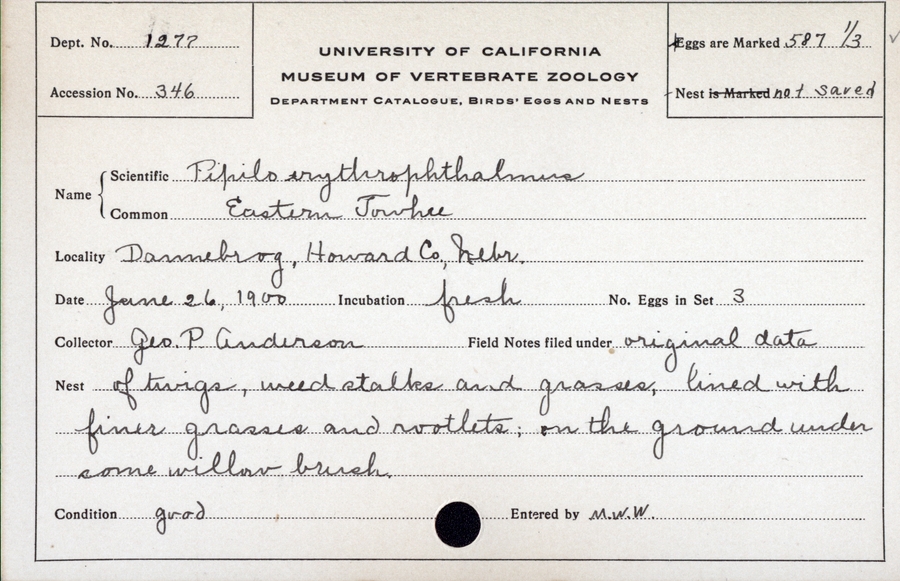 Dept. No. 1277
Accession No. 346
UNIVERSITY OF CALIFORNIA
MUSEUM OF VERTEBRATE ZOOLOGY
DEPARTMENT CATALOGUE, BIRDS' EGGS AND NESTS
Eggs are Marked 587 1/3
Nest is Marked not saved
Name
Scientific Pipilo erythrophthalmus
Common Eastern Towhee
Locality Dannebrog, Howard Co., Nebr.
Date June 26, 1900 Incubation fresh No. Eggs in Set 3
Collector Geo. P. Anderson Field Notes filed under original data
Nest of twigs, weed stalks and grasses, lined with
finer grasses and rootlets; on the ground under
some willow brush.
Condition good Entered by M.W.W.